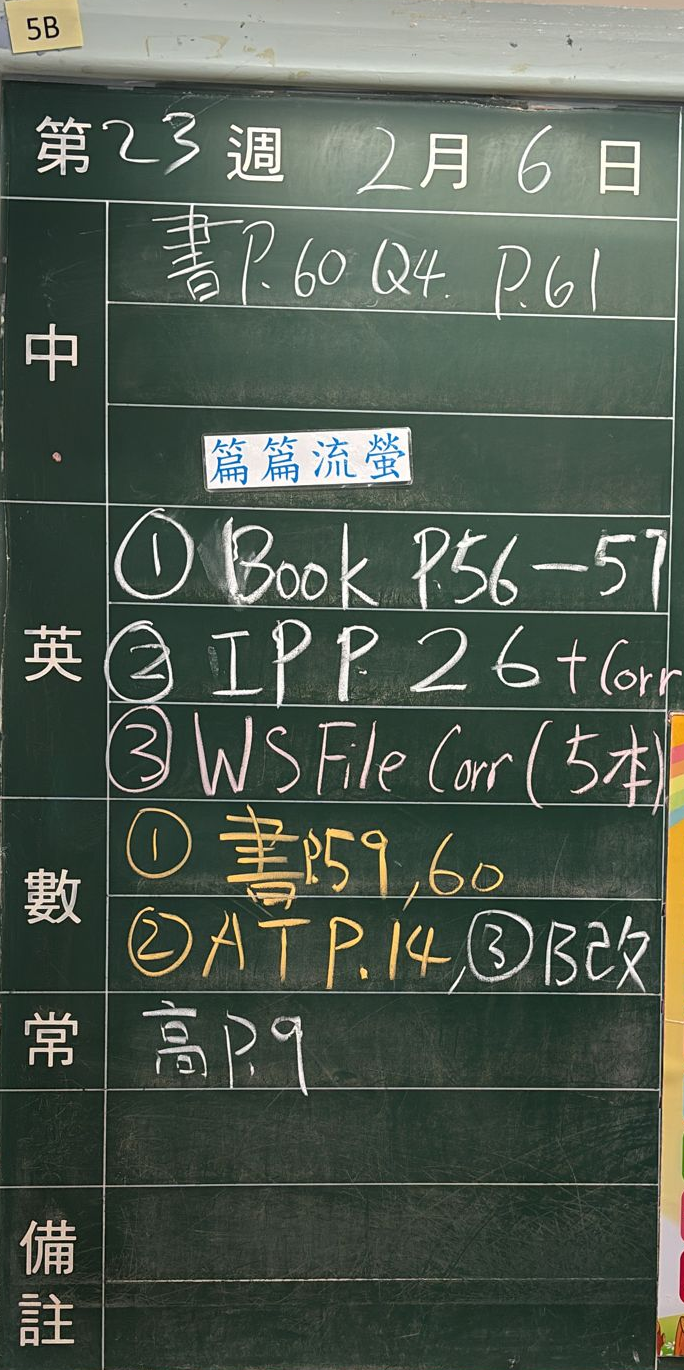 5B
第23週 2月6日
中
書P.60 Q4. P.61
篇篇流螢
英
① Book P.56-57
② IPP. 26 + Corr
③ WS File Corr (5本)
數
① 書P.59,60
② AT P.14, ③B改
常
高P.9
備註